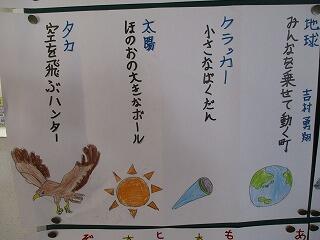 地球
吉村勇翔
みんなを乗せて動く町
クラッカー
小さなばくだん
太陽
ほのおの大きなボール
タカ
空を飛ぶハンター